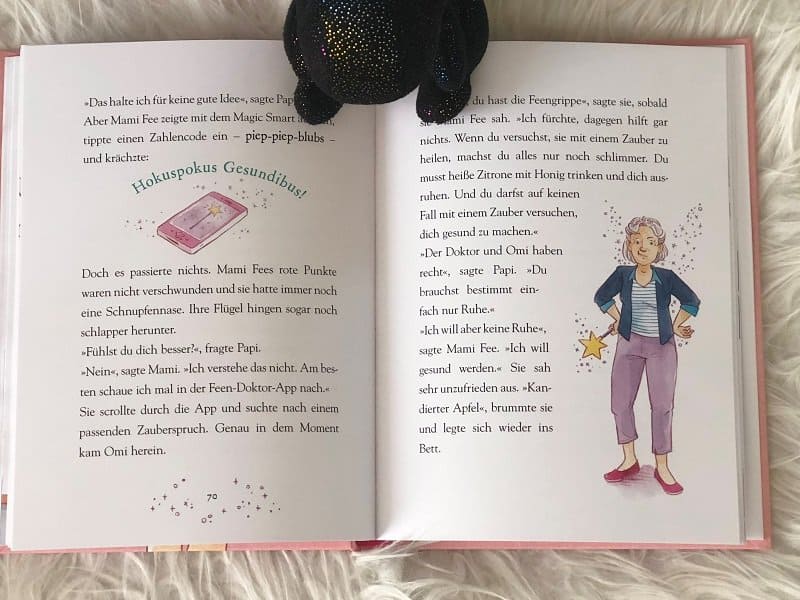 »Das halte ich für keine gute Idee«, sagte
Aber Mami Fee zeigte mit dem Magic Smart
tippte einen Zahlencode ein – piep-piep-blubs –
und krächzte:
Hokuspokus Gesundibus!
Doch es passierte nichts. Mami Fees rote Punkte
waren nicht verschwunden und sie hatte immer noch
eine Schnupfennase. Ihre Flügel hingen sogar noch
schlapper herunter.
»Fühlst du dich besser?«, fragte Papi.
»Nein«, sagte Mami. »Ich verstehe das nicht. Am bes-
ten schaue ich mal in der Feen-Doktor-App nach.«
Sie scrollte durch die App und suchte nach einem
passenden Zauberspruch. Genau in dem Moment
kam Omi herein.
70
du hast die Feengrippe«, sagte sie, sobald
sie Mami Fee sah. »Ich fürchte, dagegen hilft gar
nichts. Wenn du versuchst, sie mit einem Zauber zu
heilen, machst du alles nur noch schlimmer. Du
musst heiße Zitrone mit Honig trinken und dich aus-
ruhen. Und du darfst auf keinen
Fall mit einem Zauber versuchen,
dich gesund zu machen.«
»Der Doktor und Omi haben
recht«, sagte Papi. »Du
brauchst bestimmt ein-
fach nur Ruhe.«
»Ich will aber keine Ruhe«,
sagte Mami Fee. »Ich will
gesund werden.« Sie sah
sehr unzufrieden aus. »Kan-
dierter Apfel«, brummte sie
und legte sich wieder ins
Bett.